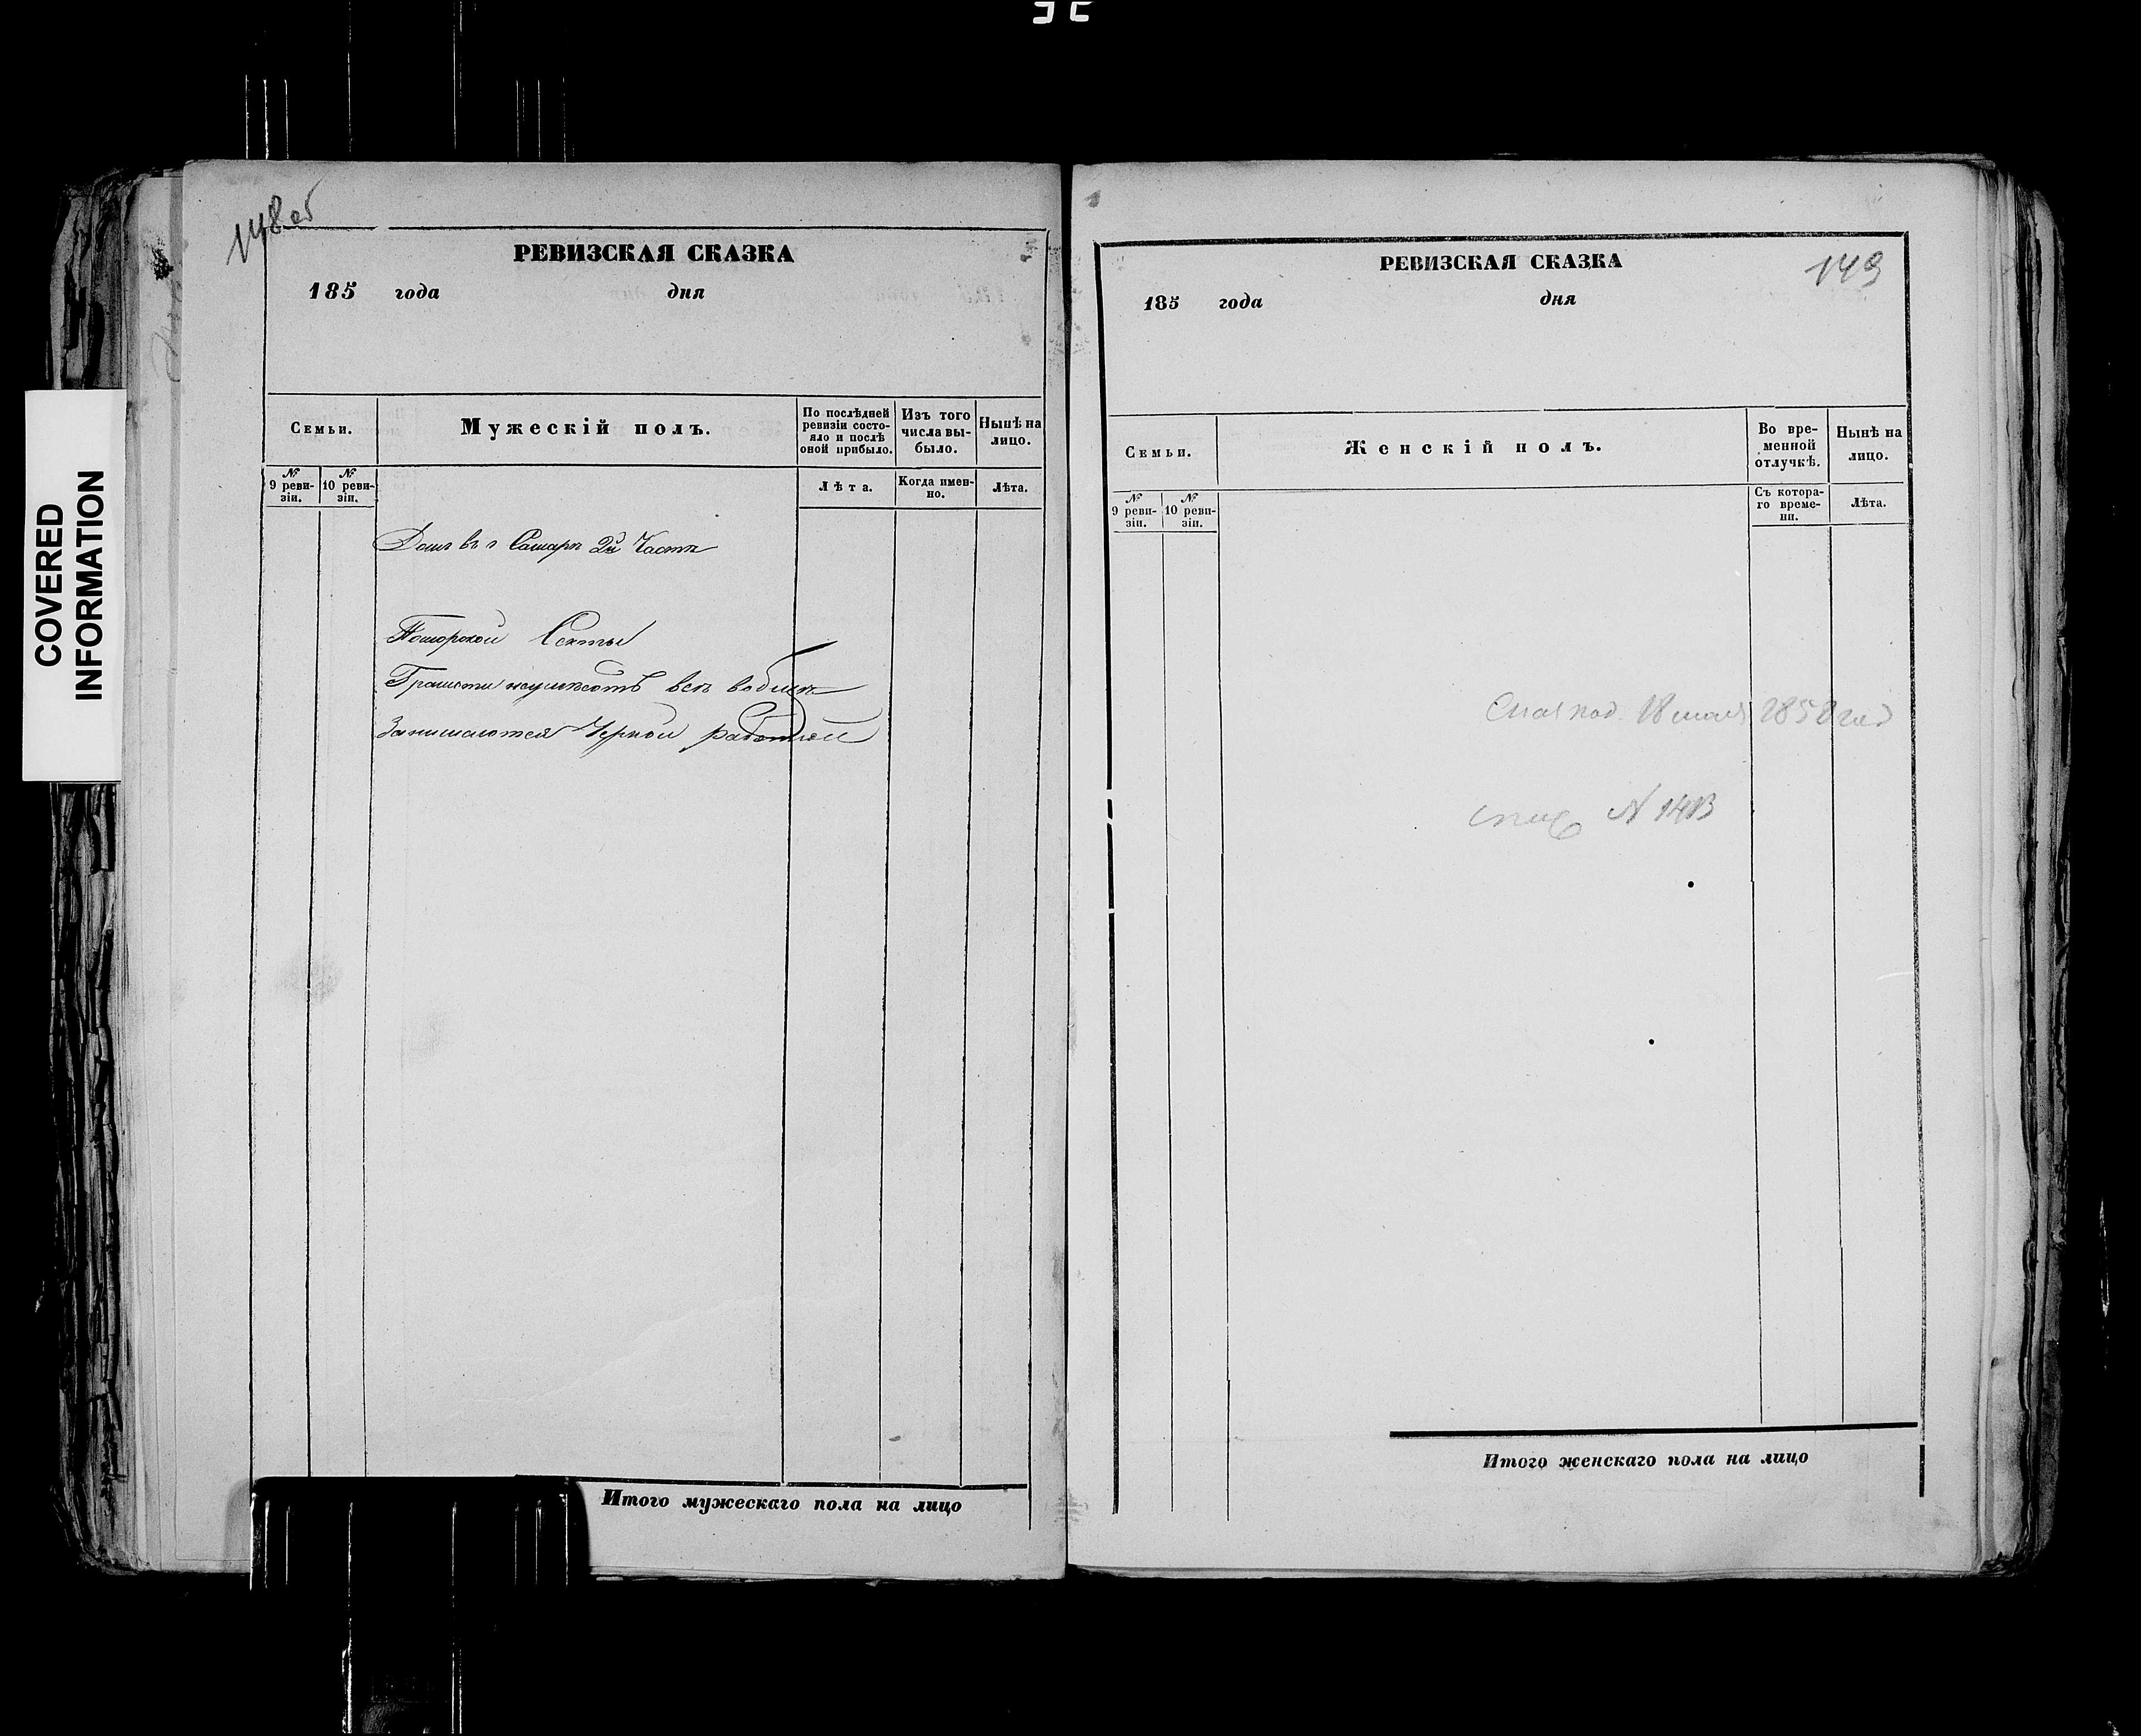 COVERED
INFORMATION
148 об
РЕВИЗСКАЯ СКАЗКА
185 года дня
Семьи.
Мужескій полъ.
По послѣдней
ревизіи состо-
яло и послѣ
оной прибыло.
Изъ того
числа вы-
было.
Нынѣ на
лицо.
№
9 реви-
зіи.
№
10 реви-
зіи.
Лѣта.
Когда имен-
но.
Лѣта.
Домъ въ г Самарѣ 2й Части
Поморской Секты
Грамоти неумѣютъ всѣ
Занимаются Черной работой
Итого мужескаго пола на лицо
149
РЕВИЗСКАЯ СКАЗКА
185 года дня
Семьи.
Женскій полъ.
Во вре-
менной
отлучкѣ.
Нынѣ на
лицо.
№
9 реви-
зіи.
№
10 реви-
зіи.
Съ котора-
го време-
ни.
Лѣта.
18 1858
N
Итого женскаго пола на лицо